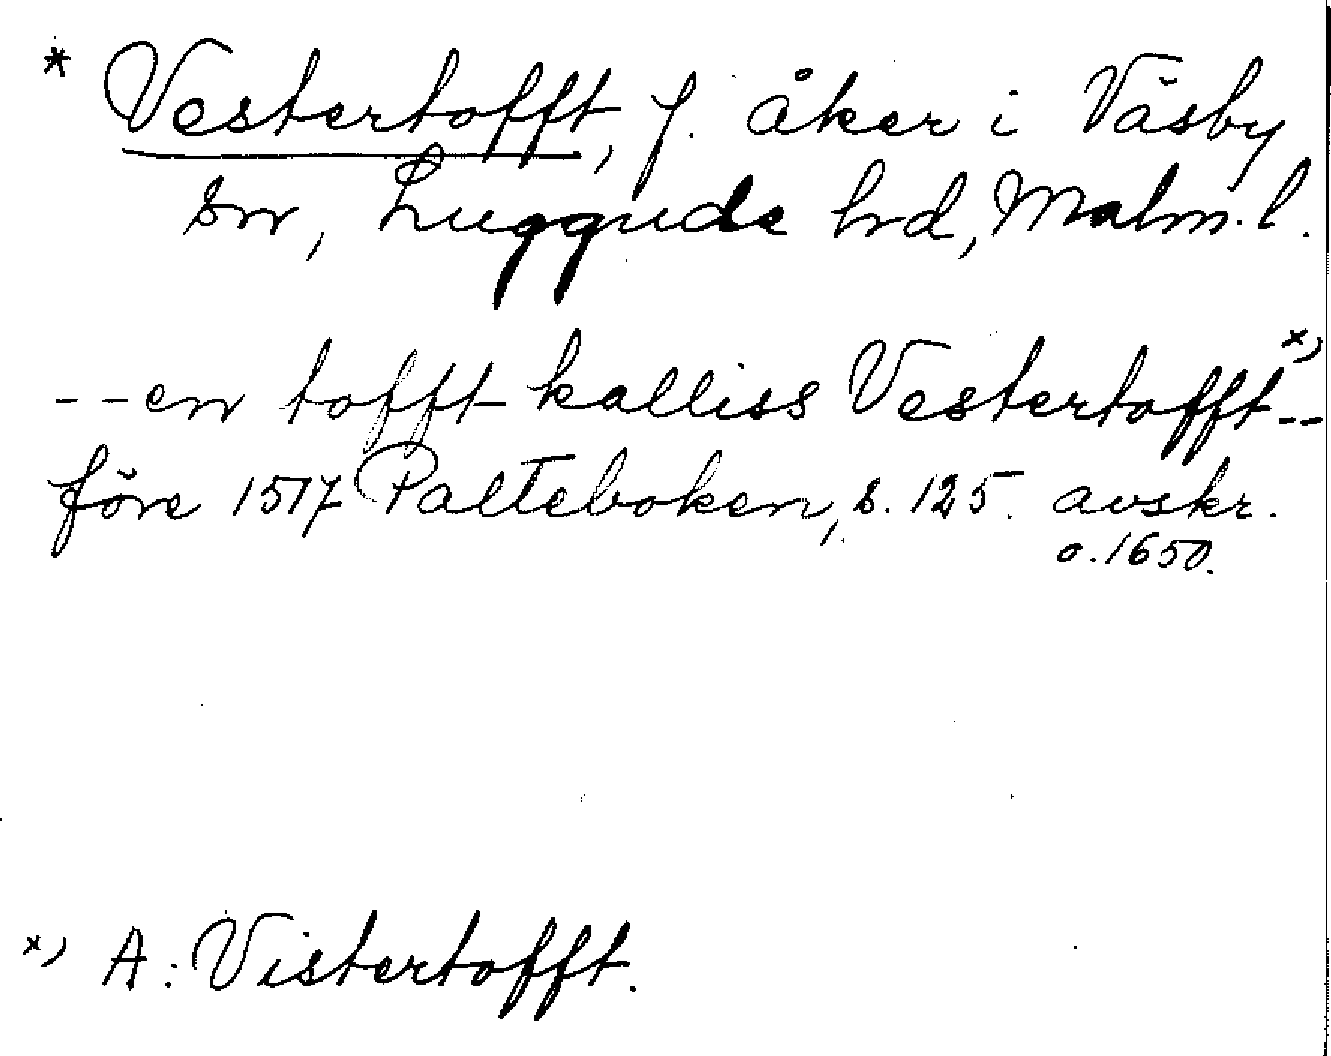 * Vestertofft, f. åker i Väsby
sn, Luggude hd, Malm. l.
--en tofft kalliss Vestertofft x) --
före 1517 Palteboken, s. 125. avskr.
o. 1650.
x) A: Vistertofft.